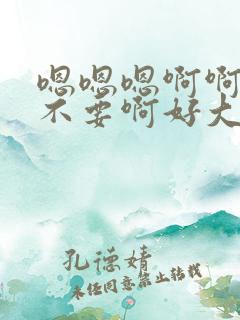 嗯嗯嗯啊啊
不要啊好大
孔德婧
未经同意禁止转载